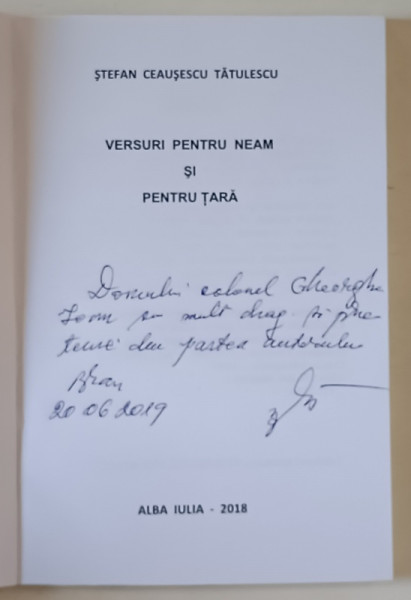 ŞTEFAN CEAUŞESCU TĂTULESCU
VERSURI PENTRU NEAM
ŞI
PENTRU ŢARĂ
Domnului colonel Gheorghe
Ioan cu mult drag și prie
tenie din partea autorului
Bran
20 06 2019
ALBA IULIA - 2018